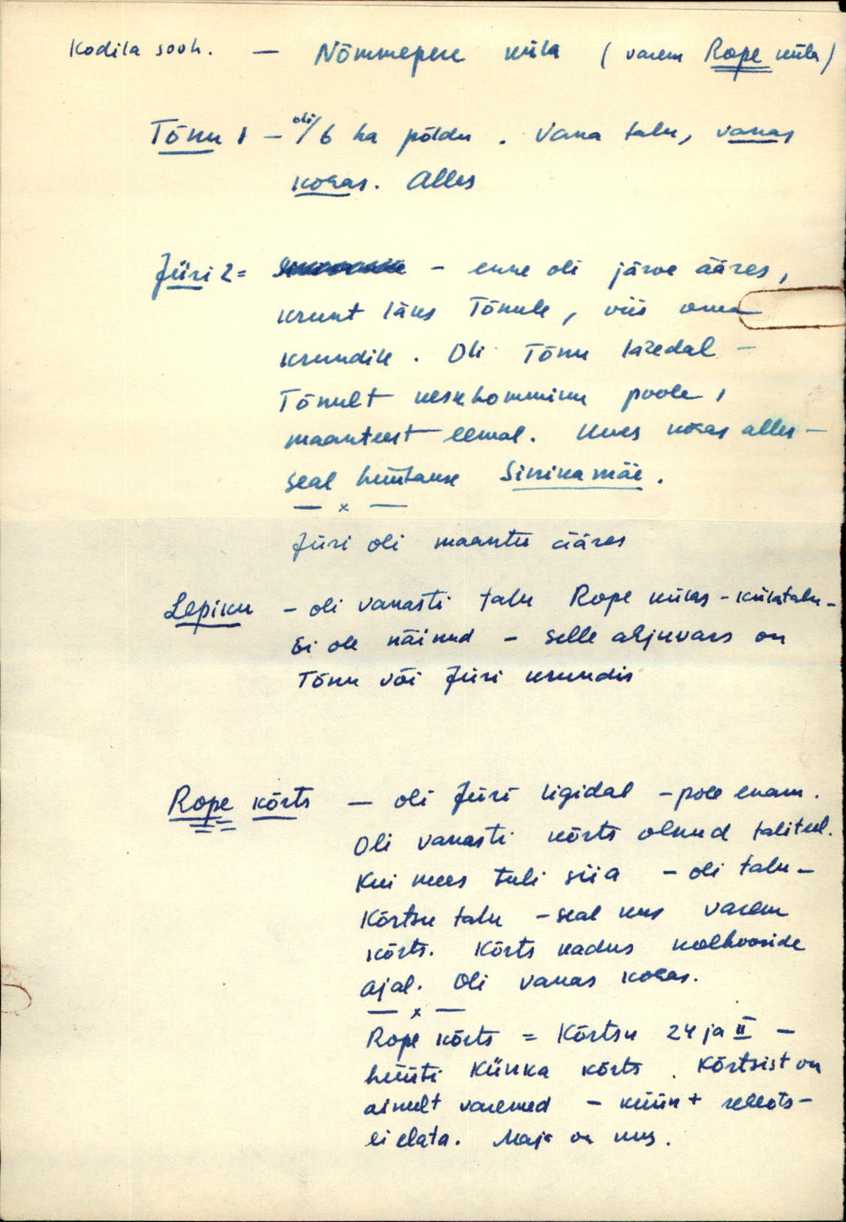 Kodila sooh. — Nõmmepere küla (varem Rope küla)
Tõnu 1 – oli 6 ha põldu. Vana talu, vanas
kohas. Alles
Jüri 2 = – enne oli järve ääres,
krunt läks Tõnule, viis oma
krundile. Oli Tõnu lähedal –
Tõnult keskhommiku poole,
maanteest eemal. Uues kohas alles –
seal hüütakse Sinikamäe.
— x —
Jüri oli maantee ääres
Lepiku – oli vanasti talu Rope külas – külatalu –
Ei ole näinud – selle ahjuvars on
Tõnu või Jüri krundis
Rope kõrts — oli Jüri ligidal – pole enam.
Oli vanasti kõrts olnud taliteel.
Kui mees tuli siia – oli talu –
Kõrtsu talu – seal kus varem
kõrts. Kõrts kadus kolhooside
ajal. Oli vanas kohas.
— x —
Rope kõrts = Kõrtsu 24 ja II –
hüüti Künka kõrts. Kõrtsist on
ainult varemed – küün +
ei elata. Maja on uus.